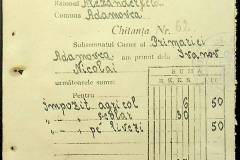 Raionul Alexandreni
Comuna Adamovca
Chitanța Nr. 62
Subsemnatul Casier al Primăriei
Adamovca am primit dela Ivanov
Nicolai
următoarele sume:
SUMA
Pentru
Impozit agricol 6 50
școlar 30
pe livezi 50